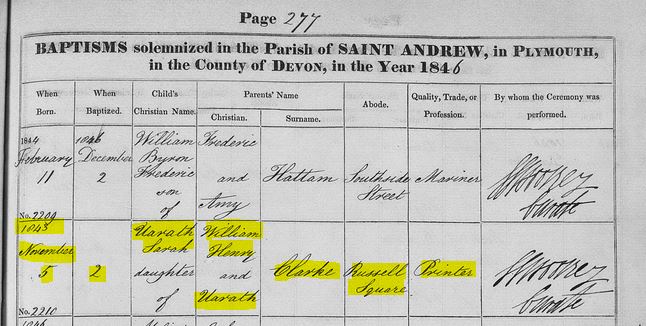 Page 277
BAPTISMS solemnized in the Parish of SAINT ANDREW, in PLYMOUTH,
in the County of DEVON, in the Year 1846
When
Born.
When
Baptized.
Child's
Christian Name.
Parents' Name
Christian.
Surname.
Abode.
Quality, Trade, or
Profession.
By whom the Ceremony was
performed.
1844
February
11
No. 2209
1846
December
2
William
Byron
Frederic
son
of
Frederic
and
Amy
Hattam
Southside
Street
Mariner
Curate
November
5
No. 2210
2
Uarath
Sarah
daughter
of
William
Henry
and
Uarath
Clarke
Russell
Square
Printer
Curate